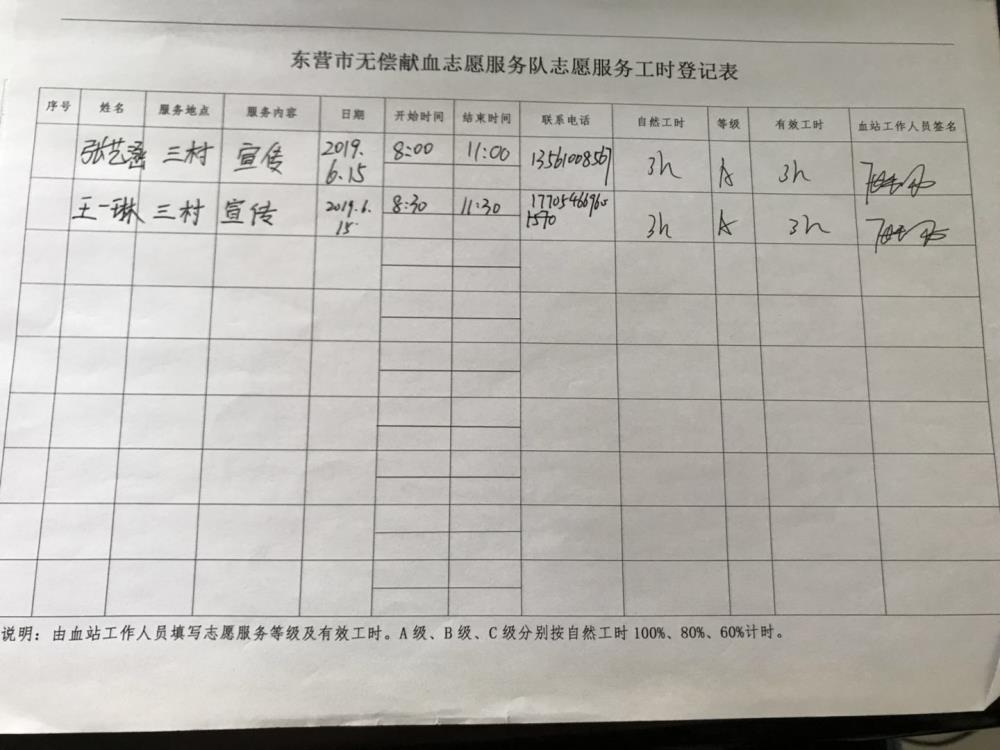 东营市无偿献血志愿服务队志愿服务工时登记表
序号 姓名 服务地点 服务内容 日期 开始时间 结束时间 联系电话 自然工时 等级 有效工时 血站工作人员签名
张艺 三村 宣传 2019. 8:00 11:00 13561008567 3h A 3h
6.15
王一琳 三村 宣传 2019.6. 8:30 11:30 3h A 3h
15.
1570
说明：由血站工作人员填写志愿服务等级及有效工时。A级、B级、C级分别按自然工时100%、80%、60%计时。